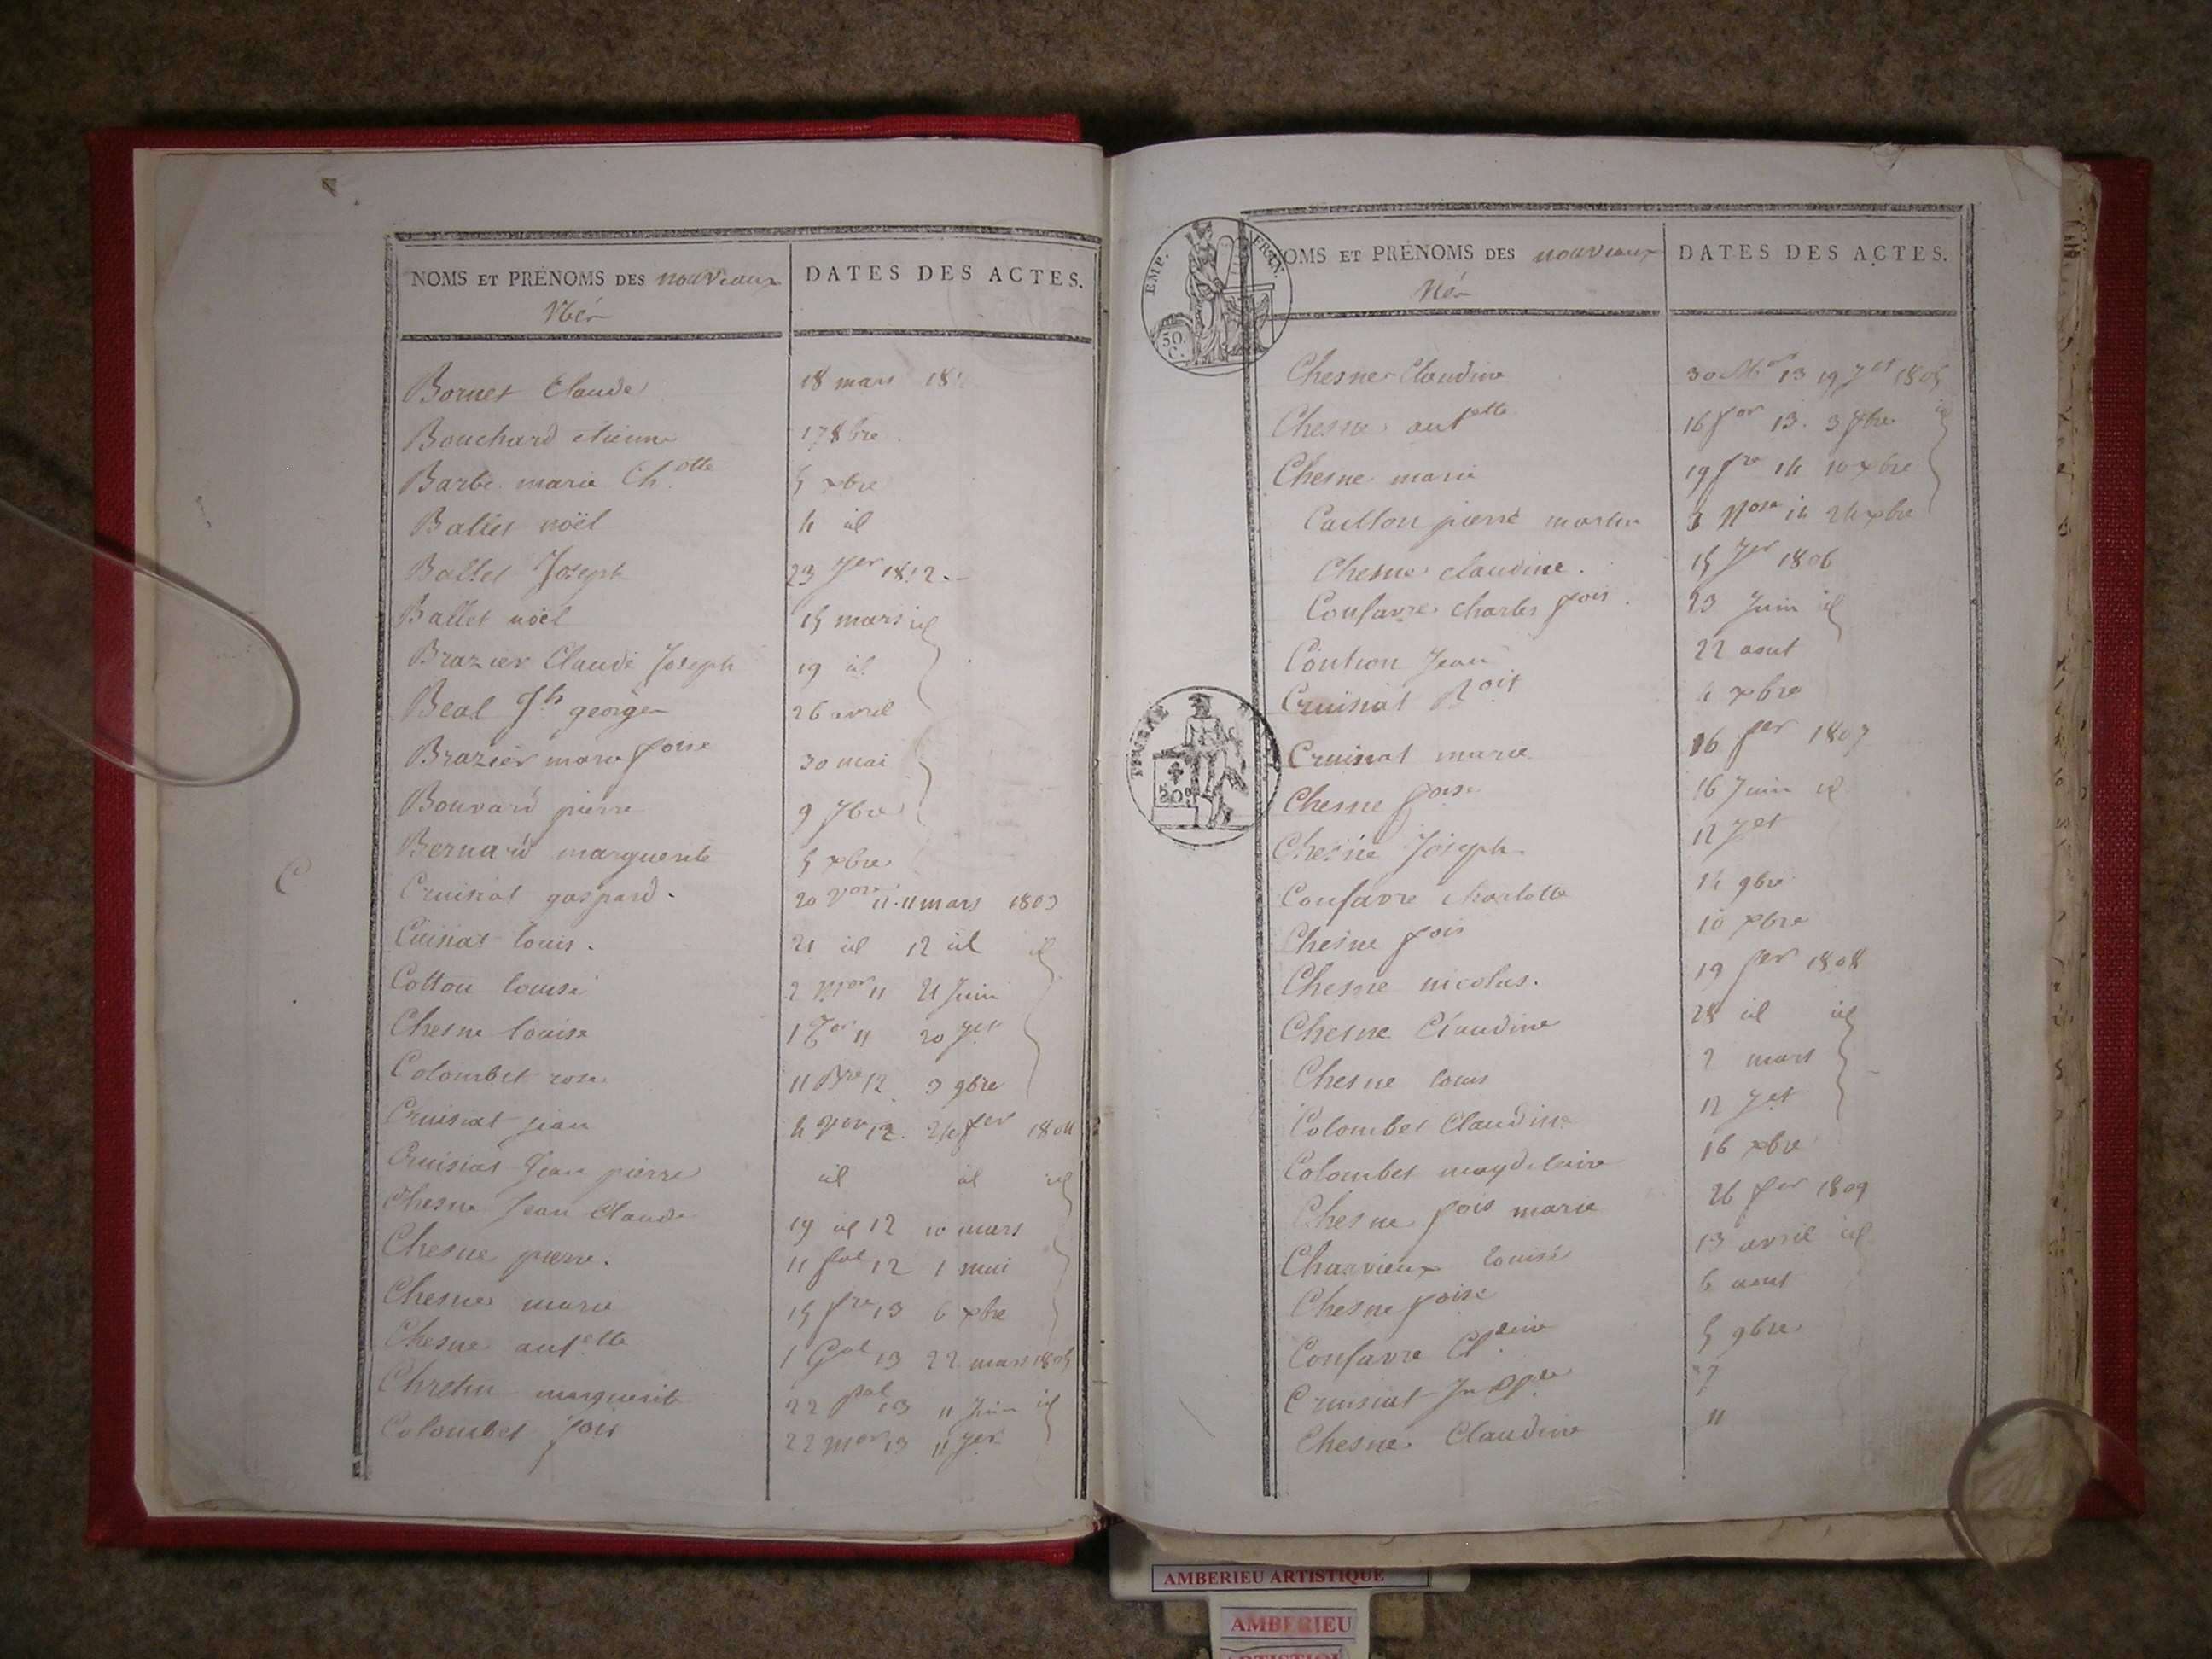 NOMS ET PRÉNOMS DES nouveaux
Nés
DATES DES ACTES.
Bornet Claude 18 mars
Bouchard etienne 17 8bre
Barbe marie Ch.otte 5 xbre
Ballet noël 4 id
Ballet Joseph 23 Jer 1812.
Ballet noël 15 mars id
Brazier Claude Joseph 19 id
Beal Jh george 26 avril
Brazier marie foise 30 mai
Bouvard pierre 9 7bre
Bernard marguerite 5 xbre
C
Cruisiat gaspard. 20 11. 11 mars 1803
Cuisiat louis. 21 id 12 id id
Cotton louise 2 11 21 Juin
Chesne louise 1 11 20 Jet
Colombet rose 11 12 3 9bre
Cruisiat jean 4 12. 24 fer 1804
Cruisiat Jean pierre id id id
Chesne Jean Claude 19 id 12 10 mars
Chesne pierre. 11 12 1 mai
Chesne marie 15 fre 13 6 xbre
Chesne ant.ette 1 Gal 13 22 mars 1805
Chretin marguerite 22 13 11 Juin id
Colombet fois 22 13 11 Jet
EMP. FRAN.
50. C.
NOMS ET PRÉNOMS DES nouveaux
Nés
DATES DES ACTES.
Chesne Claudine 30 13 19 Jet 1805
Chesne antette 16 for 13. 3 7bre id
Chesne marie 19 fre 14 10 xbre
Caillon pierre martin 3 Nose 14 24 xbre
Chesne claudine. 15 Jer 1806
Confavre charles fois. 23 Juin id
Coution Jean 22 aout
TIMBRE
50
Cruisiat Boit 4 xbre
Cruisiat marie 16 fer 1807
Chesne foise 16 Juin id
Chesne Joseph 12 Jet
Confavre charlotte 14 9bre
Chesne fois 10 xbre
Chesne nicolas. 19 fer 1808
Chesne Claudine 28 id id
Chesne louis 2 mars
Colombet Claudine 12 Jet
Colombet magdelaine 16 xbre
Chesne fois marie 26 fer 1809
Charvieux louise 13 avril id
Chesne foise 6 aout
Confavre Cl.dine 5 9bre
Cruisiat 7
Chesne Claudine 11
AMBERIEU ARTISTIQUE
AMBERIEU